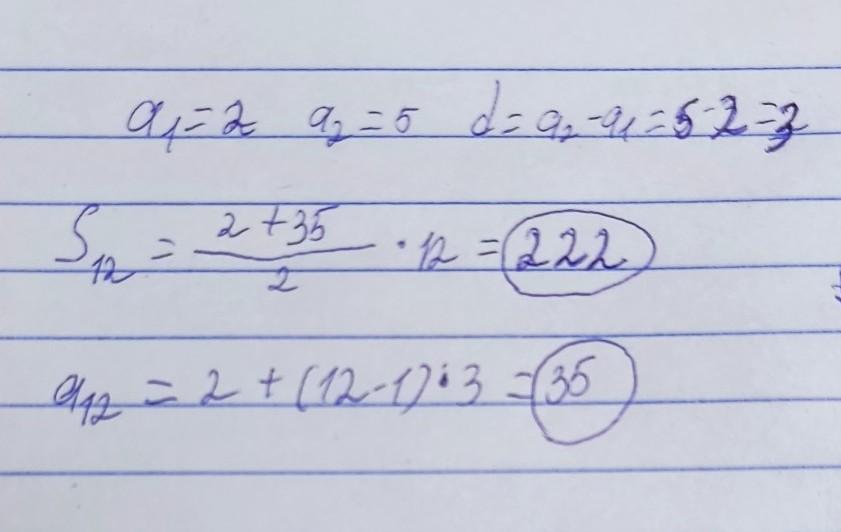 a₁=2 a₂=5 d=a₂-a₁=5-2=3
S₁₂ = (2+35)/2 · 12 = 222
a₁₂ = 2 + (12-1)·3 = 35